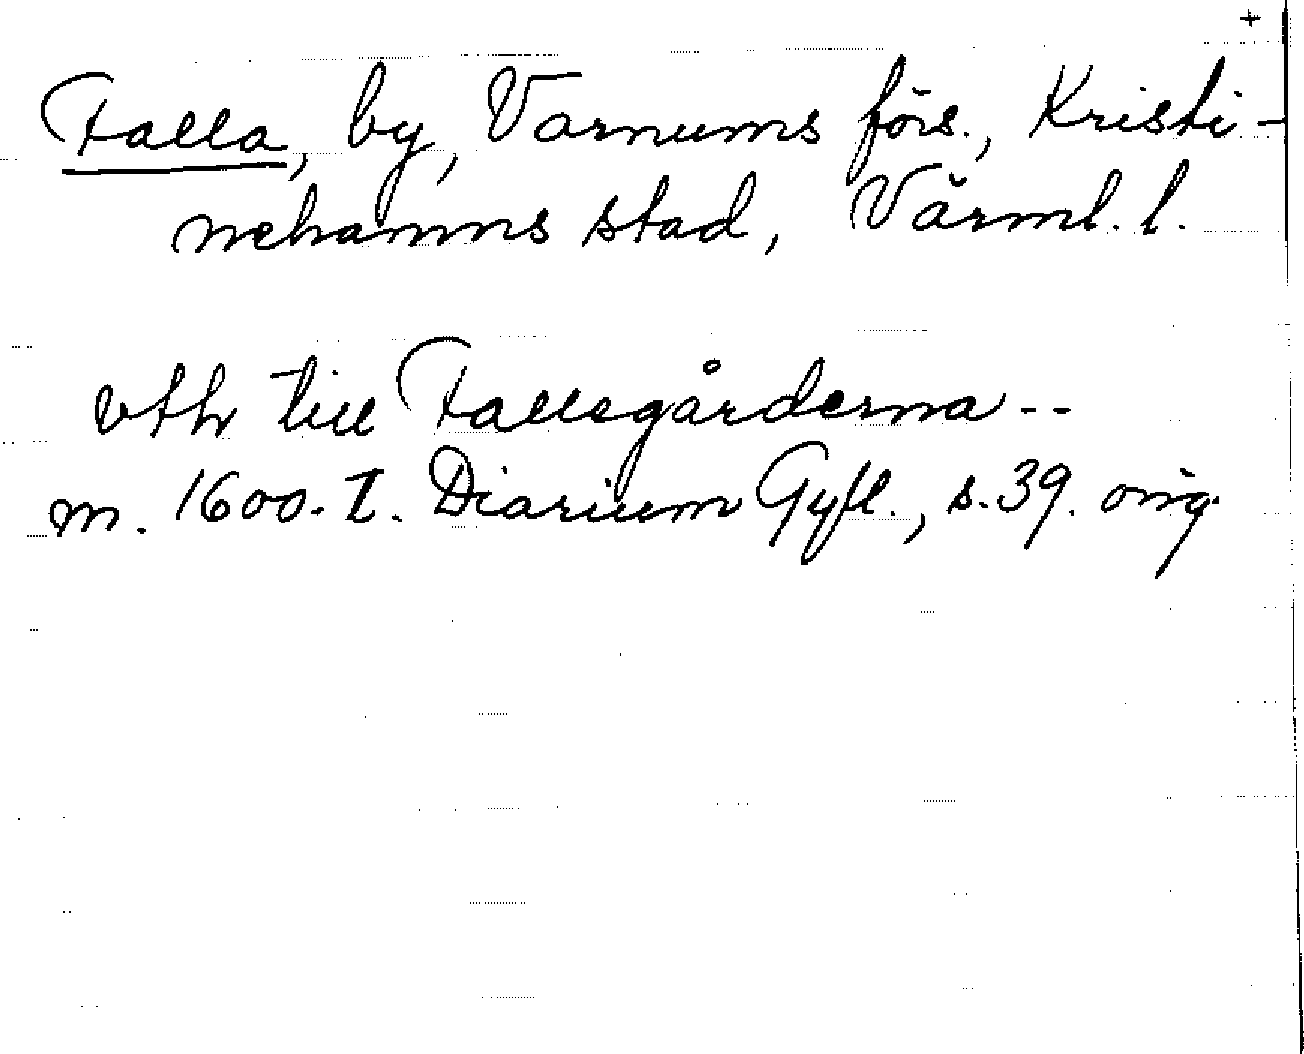 +
Falla, by, Varnums förs., Kristi-
nehamns stad, Värml. l.
vth till Fallegårderna --
m. 1600-t. Diarium Gyll., s. 39. orig.